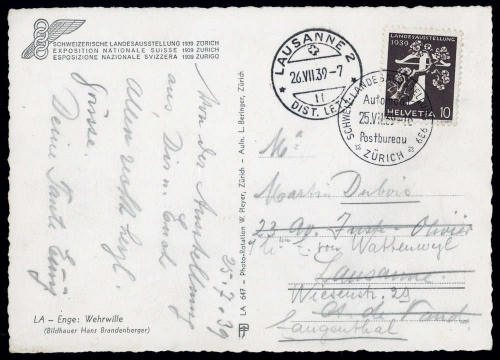 SCHWEIZERISCHE LANDESAUSSTELLUNG 1939 ZÜRICH
EXPOSITION NATIONALE SUISSE 1939 ZURICH
ESPOSIZIONE NAZIONALE SVIZZERA 1939 ZURIGO
Von der Ausstellung
aus Dir u. Euch
Allen recht herzl.
Grüsse.
Deine Tante
25.7.39
LA – Enge: Wehrwille
(Bildhauer Hans Brandenberger)
LA 647 – Photo-Rotation W. Pleyer, Zürich – Aufn. L. Beringer, Zürich
LAUSANNE 2
26.VII.39-7
DIST. LET.
LANDESAUSSTELLUNG
1939
HELVETIA 10
SCHWEIZ. LANDES 1939
Automob.
25.VII.39-16
Postbureau
ZÜRICH
Martin Dubois
23 Av. Juste-Olivier
von Wattenwyl
Lausanne
Wiesenstr. 29
Ct. de Vaud
Langenthal